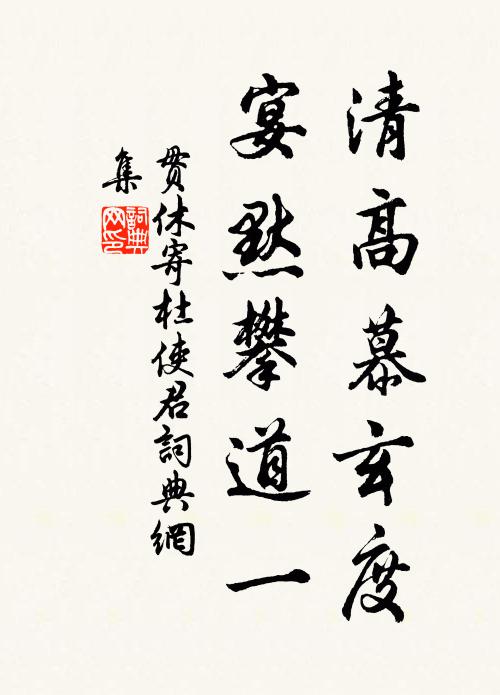 清高慕玄度
宴默攀道一
貫休寄杜使君詞典網
集
詞典網印